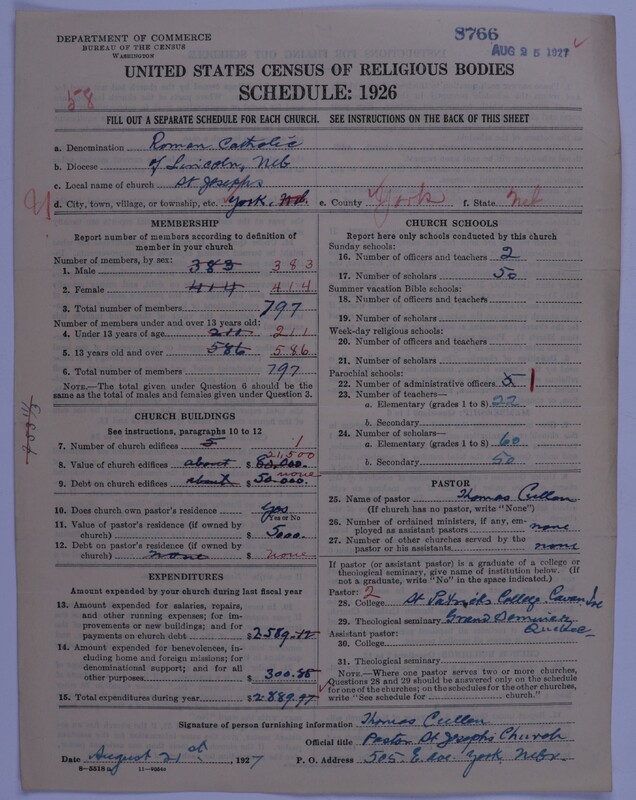 DEPARTMENT OF COMMERCE
BUREAU OF THE CENSUS
WASHINGTON
8766
AUG 25 1927
UNITED STATES CENSUS OF RELIGIOUS BODIES
SCHEDULE: 1926
58
FILL OUT A SEPARATE SCHEDULE FOR EACH CHURCH. SEE INSTRUCTIONS ON THE BACK OF THIS SHEET
a. Denomination Roman Catholic
b. Diocese of Lincoln, Neb
c. Local name of church St Josephs
d. City, town, village, or township, etc. York, Neb. e. County York f. State Neb
MEMBERSHIP
Report number of members according to definition of
member in your church
Number of members, by sex:
1. Male 383 383
2. Female 414 414
3. Total number of members 797
Number of members under and over 13 years old:
4. Under 13 years of age 211 211
5. 13 years old and over 586 586
6. Total number of members 797
NOTE.—The total given under Question 6 should be
the same as the total of males and females given under Question 3.
CHURCH BUILDINGS
See instructions, paragraphs 10 to 12
7. Number of church edifices 5 1
21,500
8. Value of church edifices about $
none
9. Debt on church edifices about $ 50.000.
10. Does church own pastor's residence yes
Yes or No
11. Value of pastor's residence (if owned by
church) $ 5000.
12. Debt on pastor's residence (if owned by
church) none $ none
EXPENDITURES
Amount expended by your church during last fiscal year
13. Amount expended for salaries, repairs,
and other running expenses; for im-
provements or new buildings; and for
payments on church debt $ 2.589.12
14. Amount expended for benevolences, in-
cluding home and foreign missions; for
denominational support; and for all
other purposes $ 300.85
15. Total expenditures during year $ 2.889.97
CHURCH SCHOOLS
Report here only schools conducted by this church
Sunday schools:
16. Number of officers and teachers 2
17. Number of scholars 50
Summer vacation Bible schools:
18. Number of officers and teachers
19. Number of scholars
Week-day religious schools:
20. Number of officers and teachers
21. Number of scholars
Parochial schools:
22. Number of administrative officers 5 1
23. Number of teachers—
a. Elementary (grades 1 to 8) 22
b. Secondary
24. Number of scholars—
a. Elementary (grades 1 to 8) 60
b. Secondary 50
PASTOR
25. Name of pastor Thomas Cullen
(If church has no pastor, write "None")
26. Number of ordained ministers, if any, em-
ployed as assistant pastors none
27. Number of other churches served by the
pastor or his assistants none
If pastor (or assistant pastor) is a graduate of a college or
theological seminary, give name of institution below. (If
not a graduate, write "No" in the space indicated.)
Pastor: 2
28. College St Patricks College Cavan Ire
29. Theological seminary Grand Seminary
Quebec
Assistant pastor:
30. College
31. Theological seminary
NOTE.—Where one pastor serves two or more churches,
Questions 28 and 29 should be answered only on the schedule
for one of the churches; on the schedules for the other churches,
write "See schedule for church."
Signature of person furnishing information Thomas Cullen
Official title Pastor St Josephs Church
Date August 21st, 1927 P. O. Address 505 E. Ave. York, Nebr.
8—5518a 11—9084a